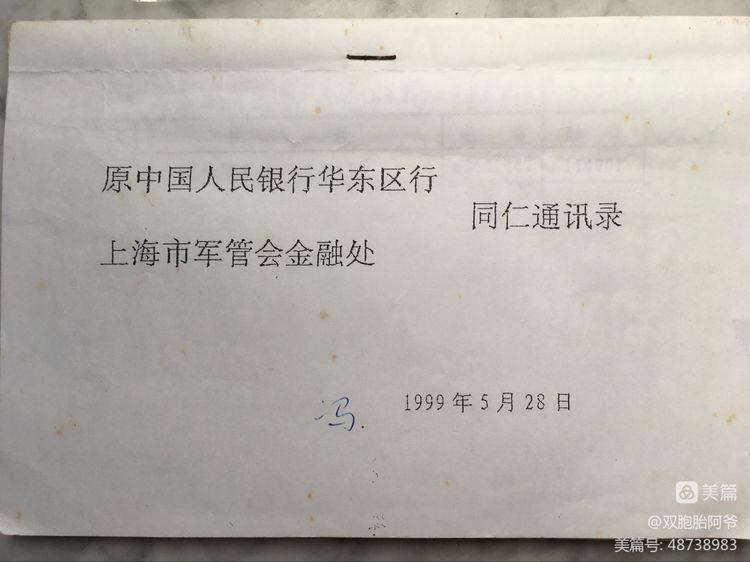 原中国人民银行华东区行
同仁通讯录
上海市军管会金融处
冯.
1999年5月28日
美篇
@双胞胎阿爷
美篇号: 48738983